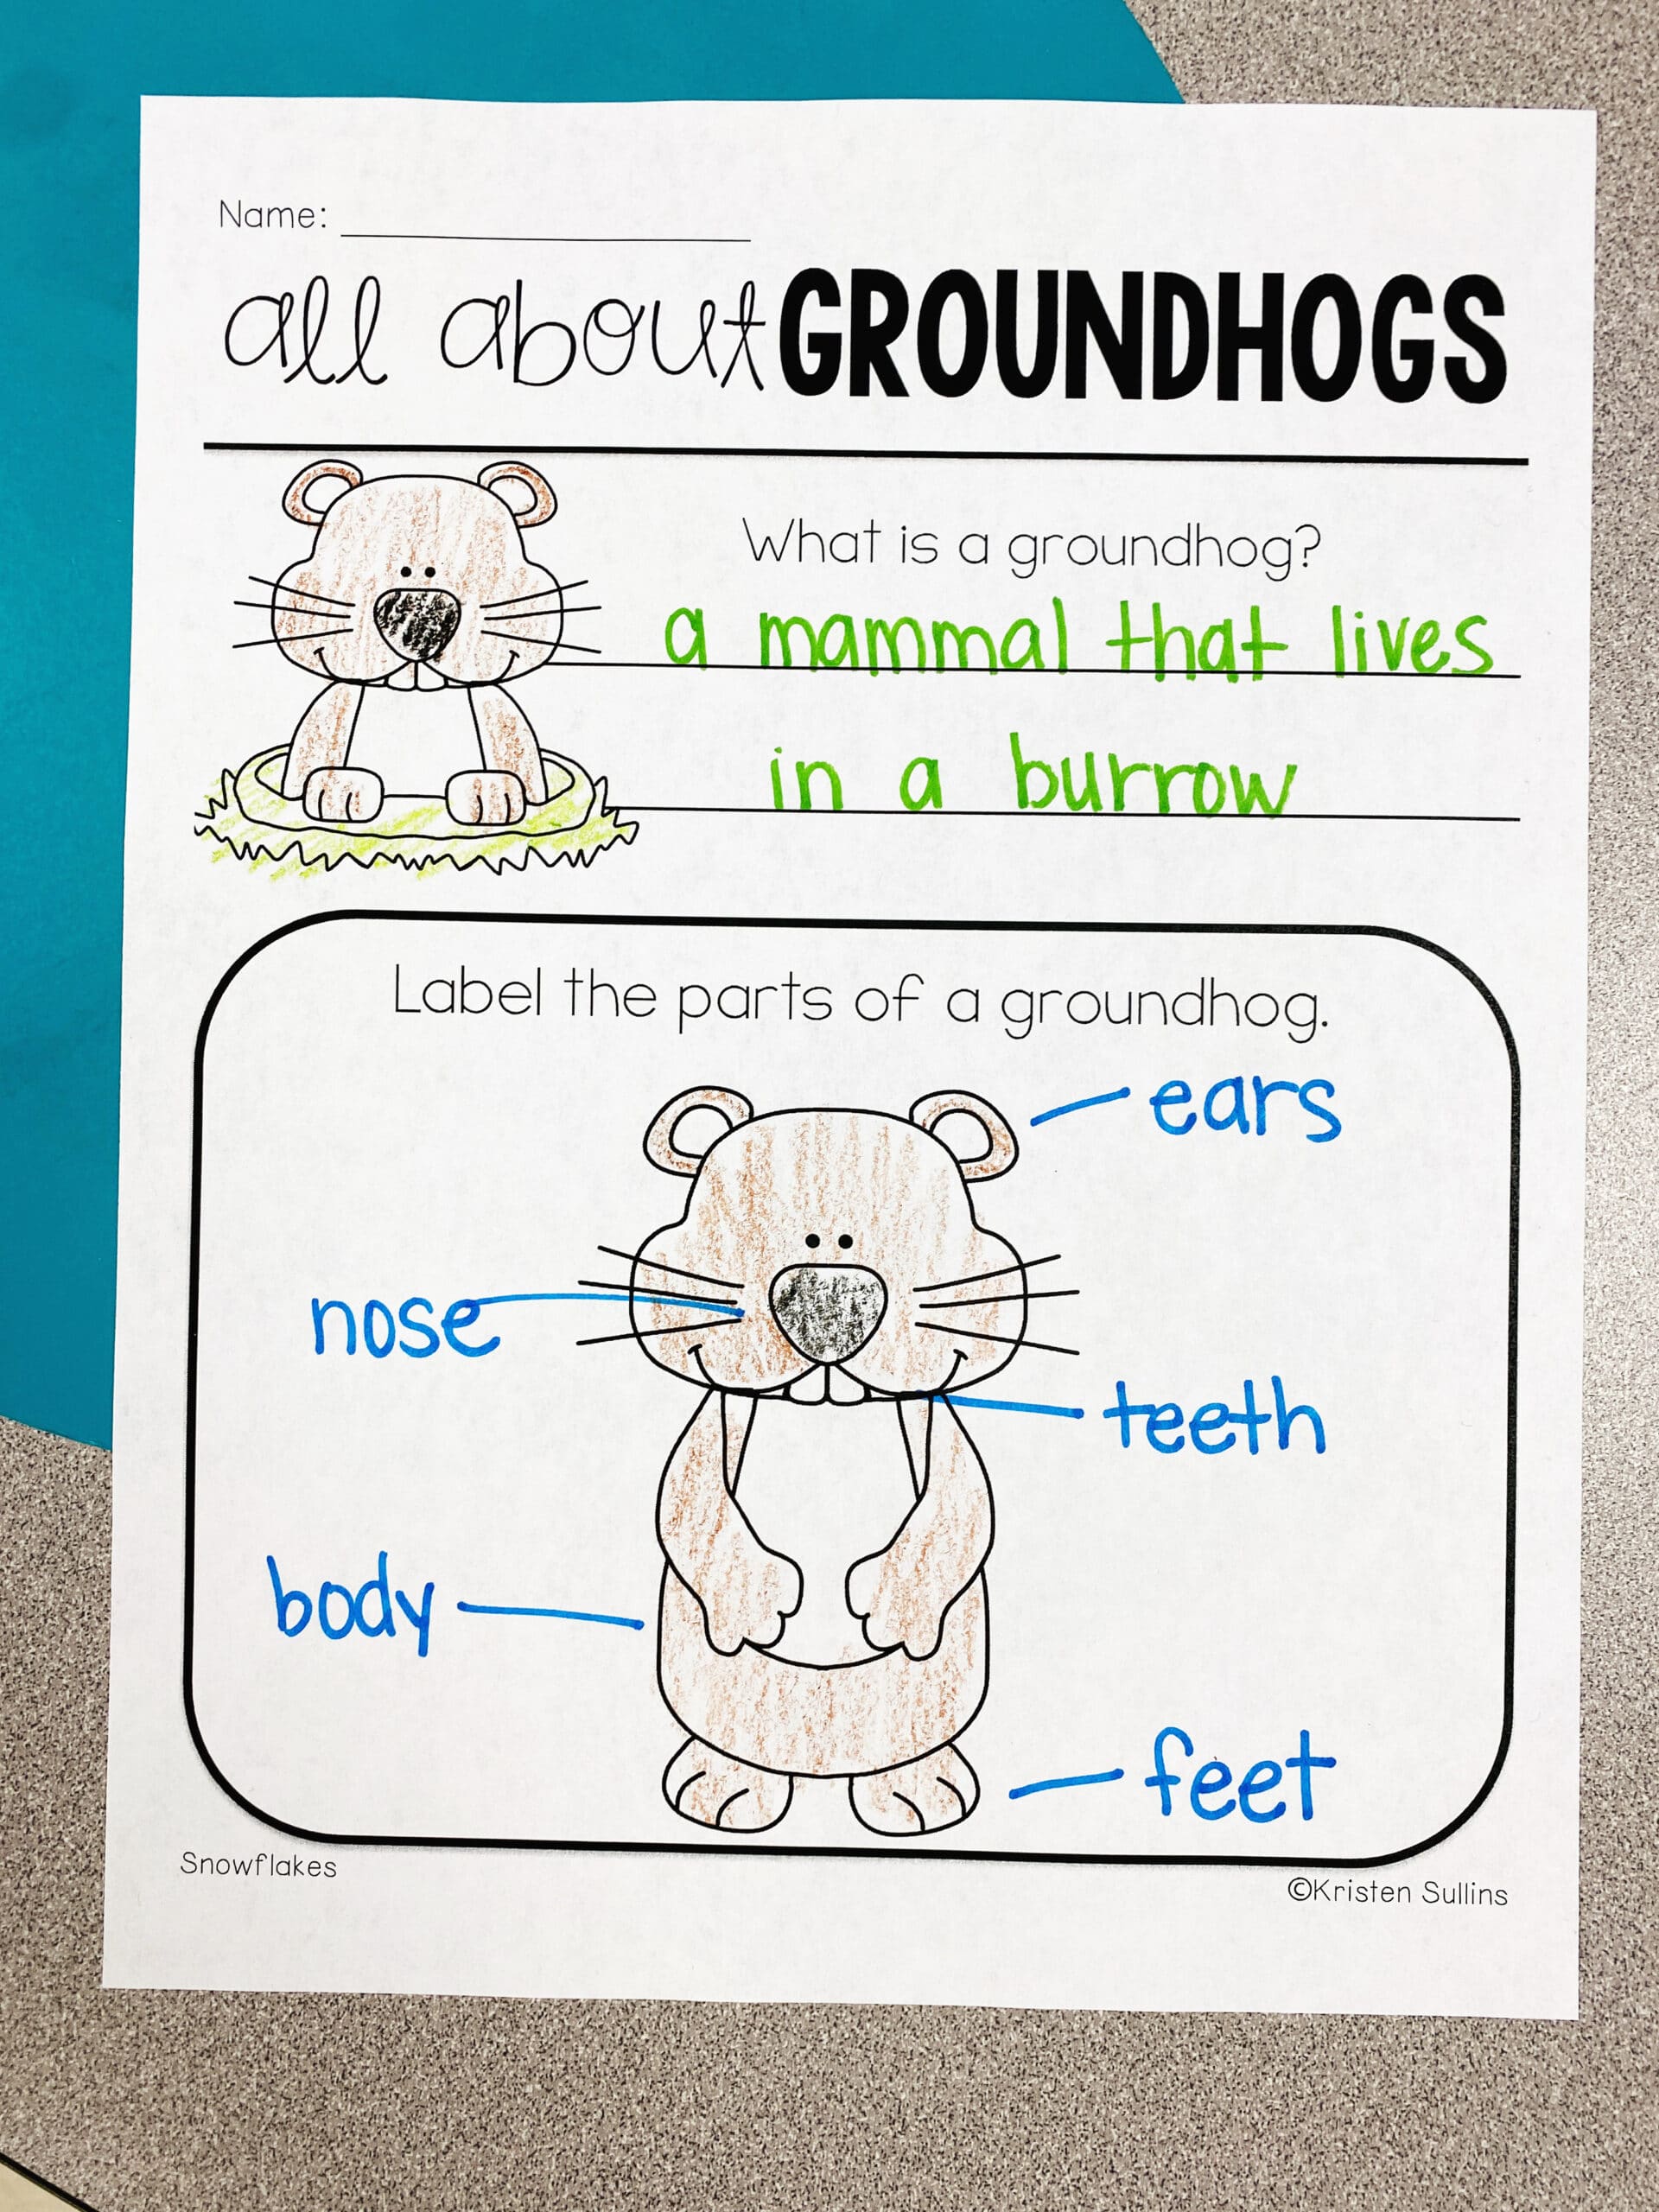 Name:
all about GROUNDHOGS
What is a groundhog?
a mammal that lives
in a burrow
Label the parts of a groundhog.
ears
nose
teeth
body
feet
Snowflakes
©Kristen Sullins